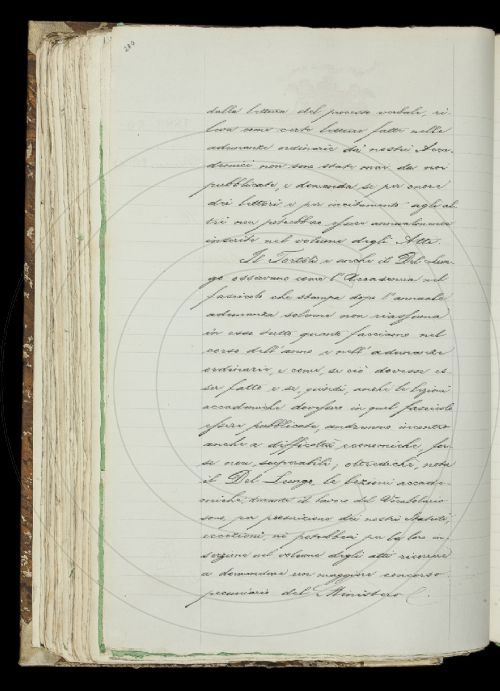 280
dalla lettura del processo verbale, ri-
leva come certe letture fatte nelle
adunanze ordinarie dai nostri Acca-
demici non son state mai da noi
pubblicate, e domanda se per onore
dei lettori e per incitamento agli al-
tri non potrebbero essere annualmente
inserite nel volume degli Atti.
Il Tortoli e anche il Del Lun-
go osservano come l'Accademia nel
fascicolo che stampa dopo l'annuale
adunanza solenne non riassuma
in esso tutto quanto facciamo nel
corso dell'anno e nell'adunanze
ordinarie, e come, se ciò dovesse es-
ser fatto e se, quindi, anche le lezioni
accademiche dovessero in quel fascicolo
essere pubblicate, andremmo incontro
anche a difficoltà economiche, for-
se non superabili, oltredichè, nota
il Del Lungo, le lezioni accade-
miche, durante il lavoro del Vocabolario
sono per prescrizione dei nostri Statuti,
eccezioni, nè potrebbesi per la loro in-
serzione nel volume degli atti ricorrere
a domandare un maggiore concorso
pecuniario del Ministero